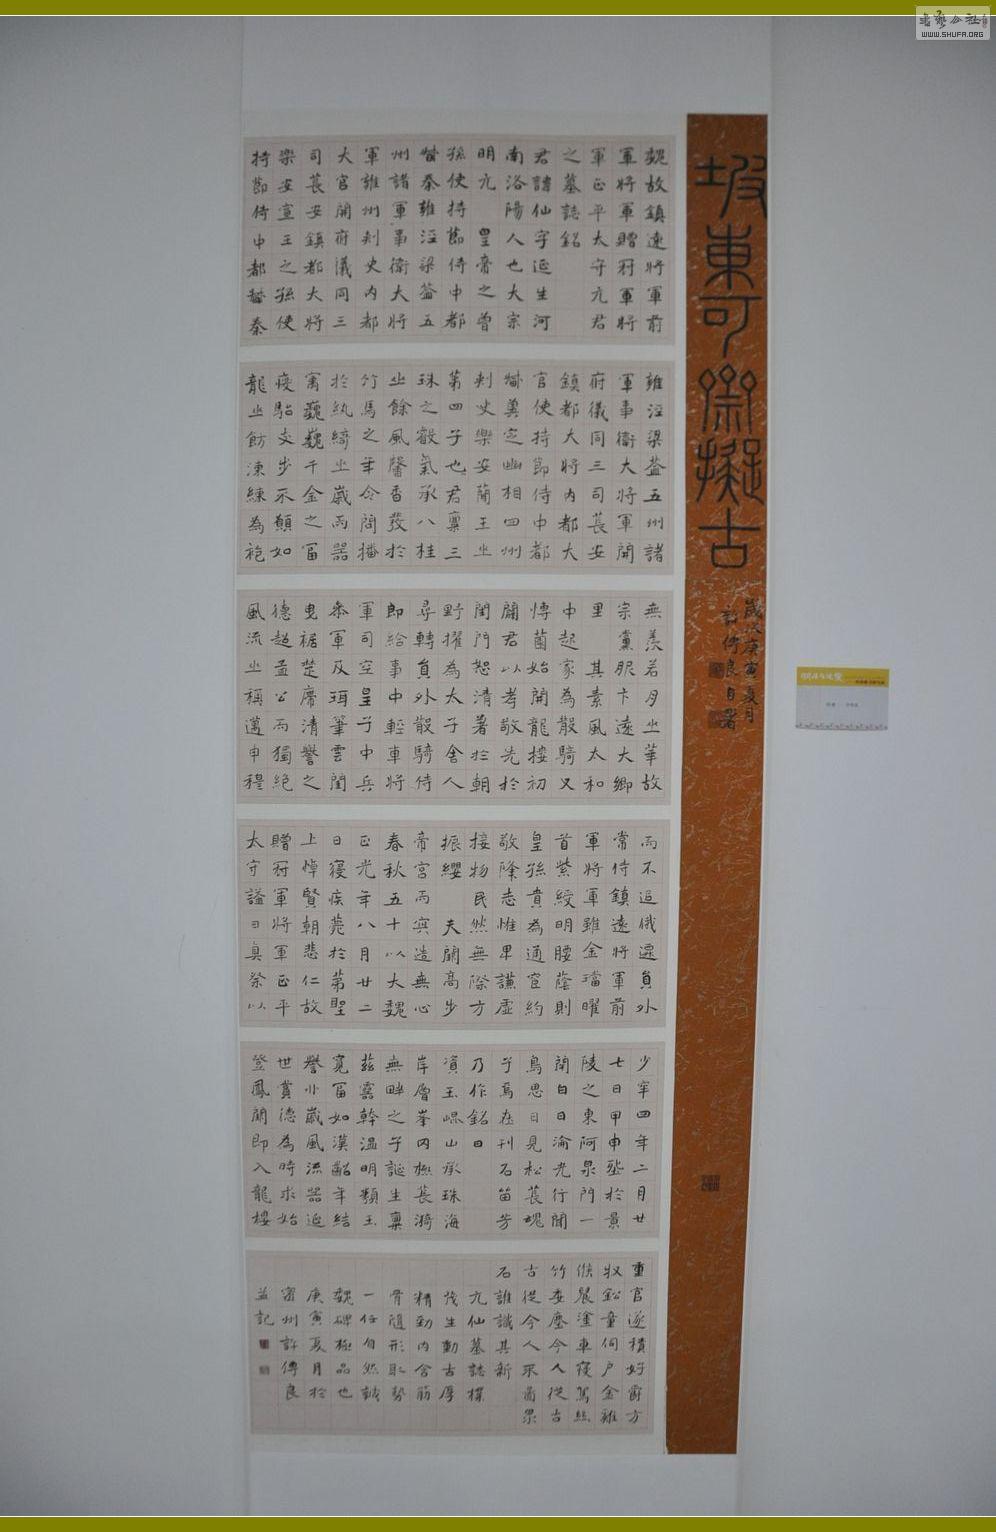 坡東可斋擬古
歲次庚寅夏月
許傳良自署
魏故鎮遠將軍前
軍將軍贈冠軍將
軍正平太守元君
之墓誌銘
君諱仙字延生河
南洛陽人也太宗
明元 皇帝之曾
孫使持節侍中都
督秦雍涇梁益五
州諸軍事衛大將
軍雍州刺史內都
大官開府儀同三
司萇安鎮都大將
樂安宣王之孫使
持節侍中都督秦
雍涇梁益五州諸
軍事衛大將軍開
府儀同三司萇安
鎮都大將內都大
官使持節侍中都
督冀定幽相四州
刺史樂安蘭王㞢
第四子也君稟三
珠之𣪊氣承八桂
㞢餘風馨香發於
竹馬之年令問播
於紈綺㞢歲而器
㝢巍巍千金之冨
疫駘交步不顛如
龍㞢飭湅練為袍
無羨若月㞢華故
宗黨服卞遠大鄉
里 其素風太和
中起家為散騎又
愽蘭始開龍接初
闢君以孝敬先於
閨門恕清著於朝
野擢為太子舍人
尋轉負外散騎侍
郎給事中輕車將
軍司空皇子中兵
叅軍及珥筆雲閣
曳裾楚席清譽之
德超孟公而獨絕
風流㞢稱邁申穆
而不追俄遷負外
常侍鎮遠將軍前
軍將軍雖金璫曜
首紫綬明腰蔭則
皇孫貴為通官約
敬降志惟卑謙虛
接物民然無際方
振纓 天闕高步
帝宮而㝠造無心
春秋五十以大魏
正光年八月廿二
日寢疾薨於第聖
上悼賢朝悲仁故
贈冠軍將軍正平
太守謚曰真祭以
少牢四年二月廿
七日甲申塟於景
陵之東阿泉門一
閇白日淪光行聞
鳥思日見松萇媿
乎焉在刊石笛芳
乃作銘曰
濱玉崐山承珠海
岸層峯內橅萇漪
無畔之子誕生稟
茲靈幹溫明類玉
寬冨如漢齠年結
譽丱歲風流器延
世賞德為時求始
登鳳閣即入龍樓
重官遂積好爵方
牧鈆童伺戶金雞
候晨塗車寢駕絲
竹委塵今人從古
古從今人不啚泉
石誰識其新
元仙墓誌樸
茂生動古厚
精勁內含筋
骨隨形取勢
一任自然誠
魏碑極品也
庚寅夏月於
密州許傳良
并記
書藝公社
WWW.SHUFA.ORG